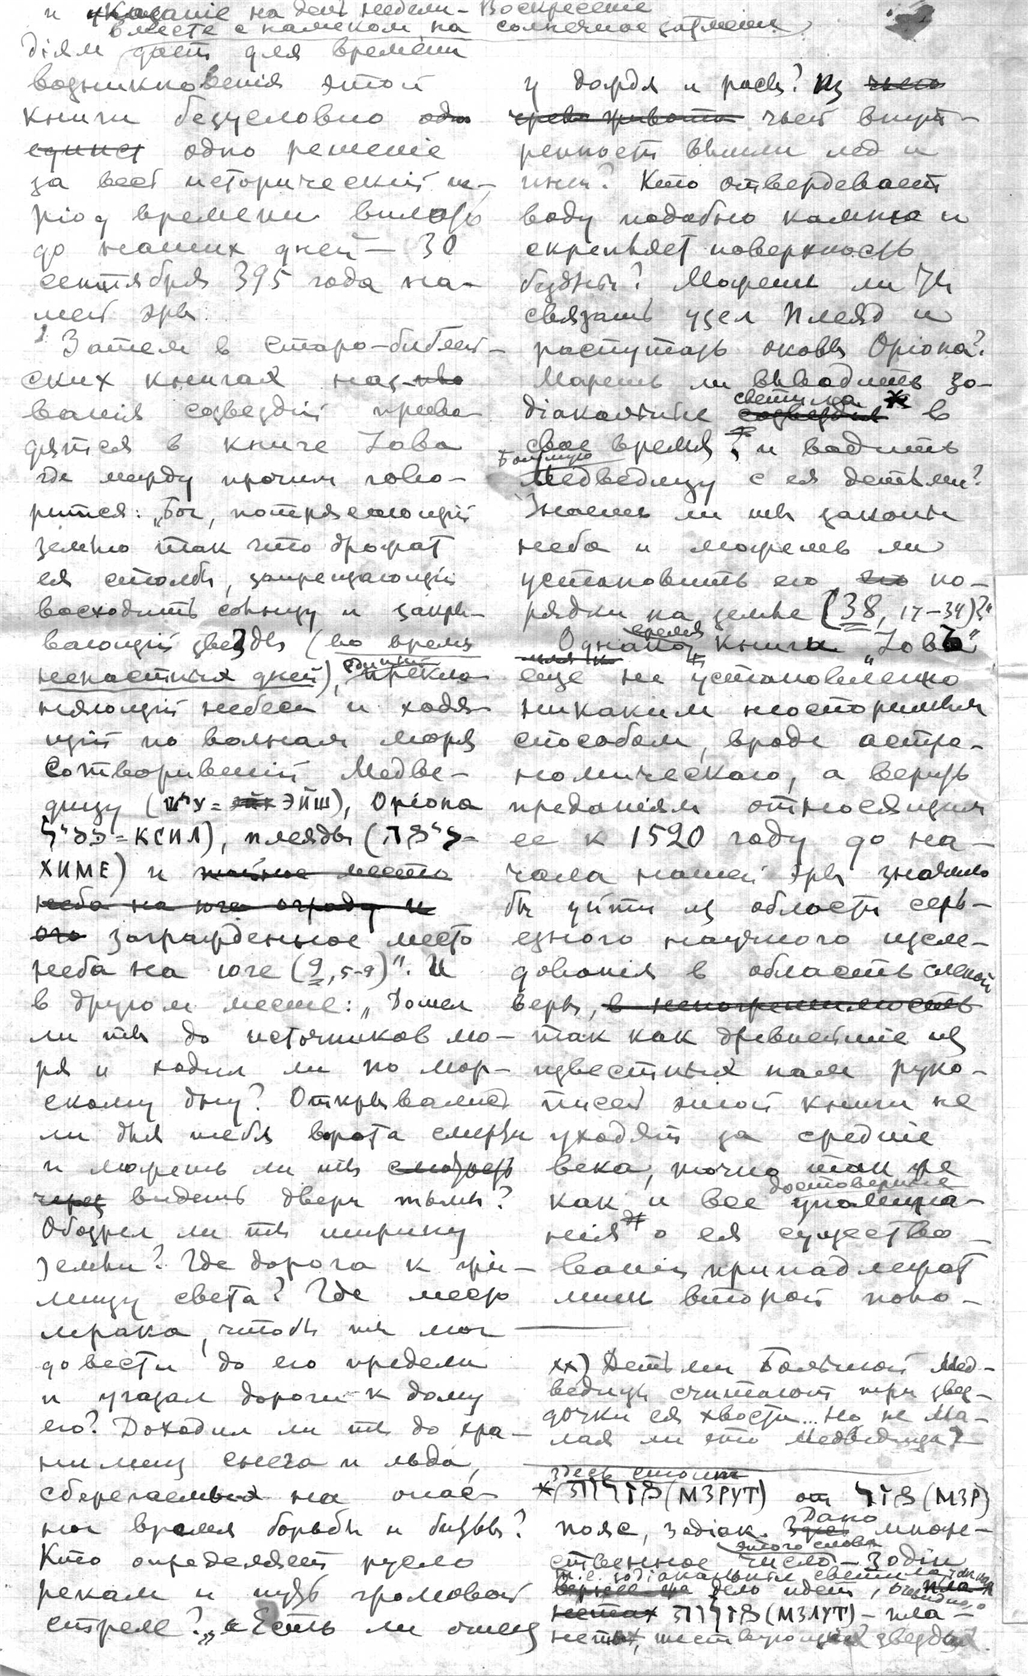 и указаніе на день недели - Воскресеніе
вместе с намеком на солнечное затменіе
діям дает для времени
возникновенія этой
книги безусловно одно
единст одно решеніе
за весь историческій пе-
ріод времени вплоть
до наших дней — 30
сентября 395 года на-
шей эры.
Затем в старо-библей-
ских книгах наз-
ванія созвездій приво-
дятся в книге Iова
где между прочим гово-
рится: „Бог, потрясающій
землю так что дрожат
ея столбы, запрещающій
восходить солнцу и закры-
вающій звезды (во время
ненастных дней), единый прекло-
няющій небеса и ходя-
щій по волнам моря
сотворившій Медве-
дицу (עיש = ЭЙШ), Оріона
כסיל = КСИЛ), плеяды (כימה =
ХИМЕ) и южное место
неба на юге ограду и
ого загражденное место
неба на юге (9, 5-9)". И
в другом месте: „Дошел
ли ты до источников мо-
ря и ходил ли по мор-
скому дну? Открывались
ли для тебя ворота смерти
и можешь ли ты смотреть
через видеть двери тьмы?
Обозрел ли ты ширину
земли? Где дорога к жи-
лищу света? Где место
мрака, чтобы ты мог
довести до его предела
и угадал дороги к дому
его? Доходил ли ты до хра-
нилищ снега и льда,
сберегаемых на опас-
ное время борьбы и битвы?
Кто определяет русло
рекам и путь громовой
стреле? Есть ли отец
у дождя и росы? Из чьего
чрева живота чьей внут-
ренности вышли лед и
иней? Кто отвердевает
воду подобно камню и
скрепляет поверхность
бездны? Можешь ли ты
связать узел Плеяд и
распутать оковы Оріона?
Можешь ли выводить зо-
діакальные созвездія светила * в
свое время и водить
Большую Медведицу с ея детьми?
Знаешь ли ты законы
неба и можешь ли
установить его его по-
рядки на земле (38, 17-34)?"
Однако время книги „Iовъ"
еще не установлено
никаким неоспоримым
способом, вроде астро-
номическаго, а верить
преданіям относящим
ее к 1520 году до на-
чала нашей эры значило
бы уйти из области серь-
езного научного изсле-
дованія в область слепой
веры, в непогрешимость
так как древнейшие из
известных нам руко-
писей этой книги не
уходят за средніе
века, точно так же
как и все достоверные упомина-
нія о ея существо-
ваніи принадлежат
лишь второй поло-
хх) Детьми Большой Мед-
ведицы считают три звез-
дочки ея хвоста... Но не Ма-
лая ли это Медведица?
* здесь стоит מזרות (МЗРУТ) от מזר (МЗР)
пояс, зодіак. Дано множе-
ственное число этого слова — Зодіи
т.е. зодіакальныя светила
дело идет, очевидно, о пла-
нетах מזלות (МЗЛУТ) — пла-
неты, шествующих звездах.